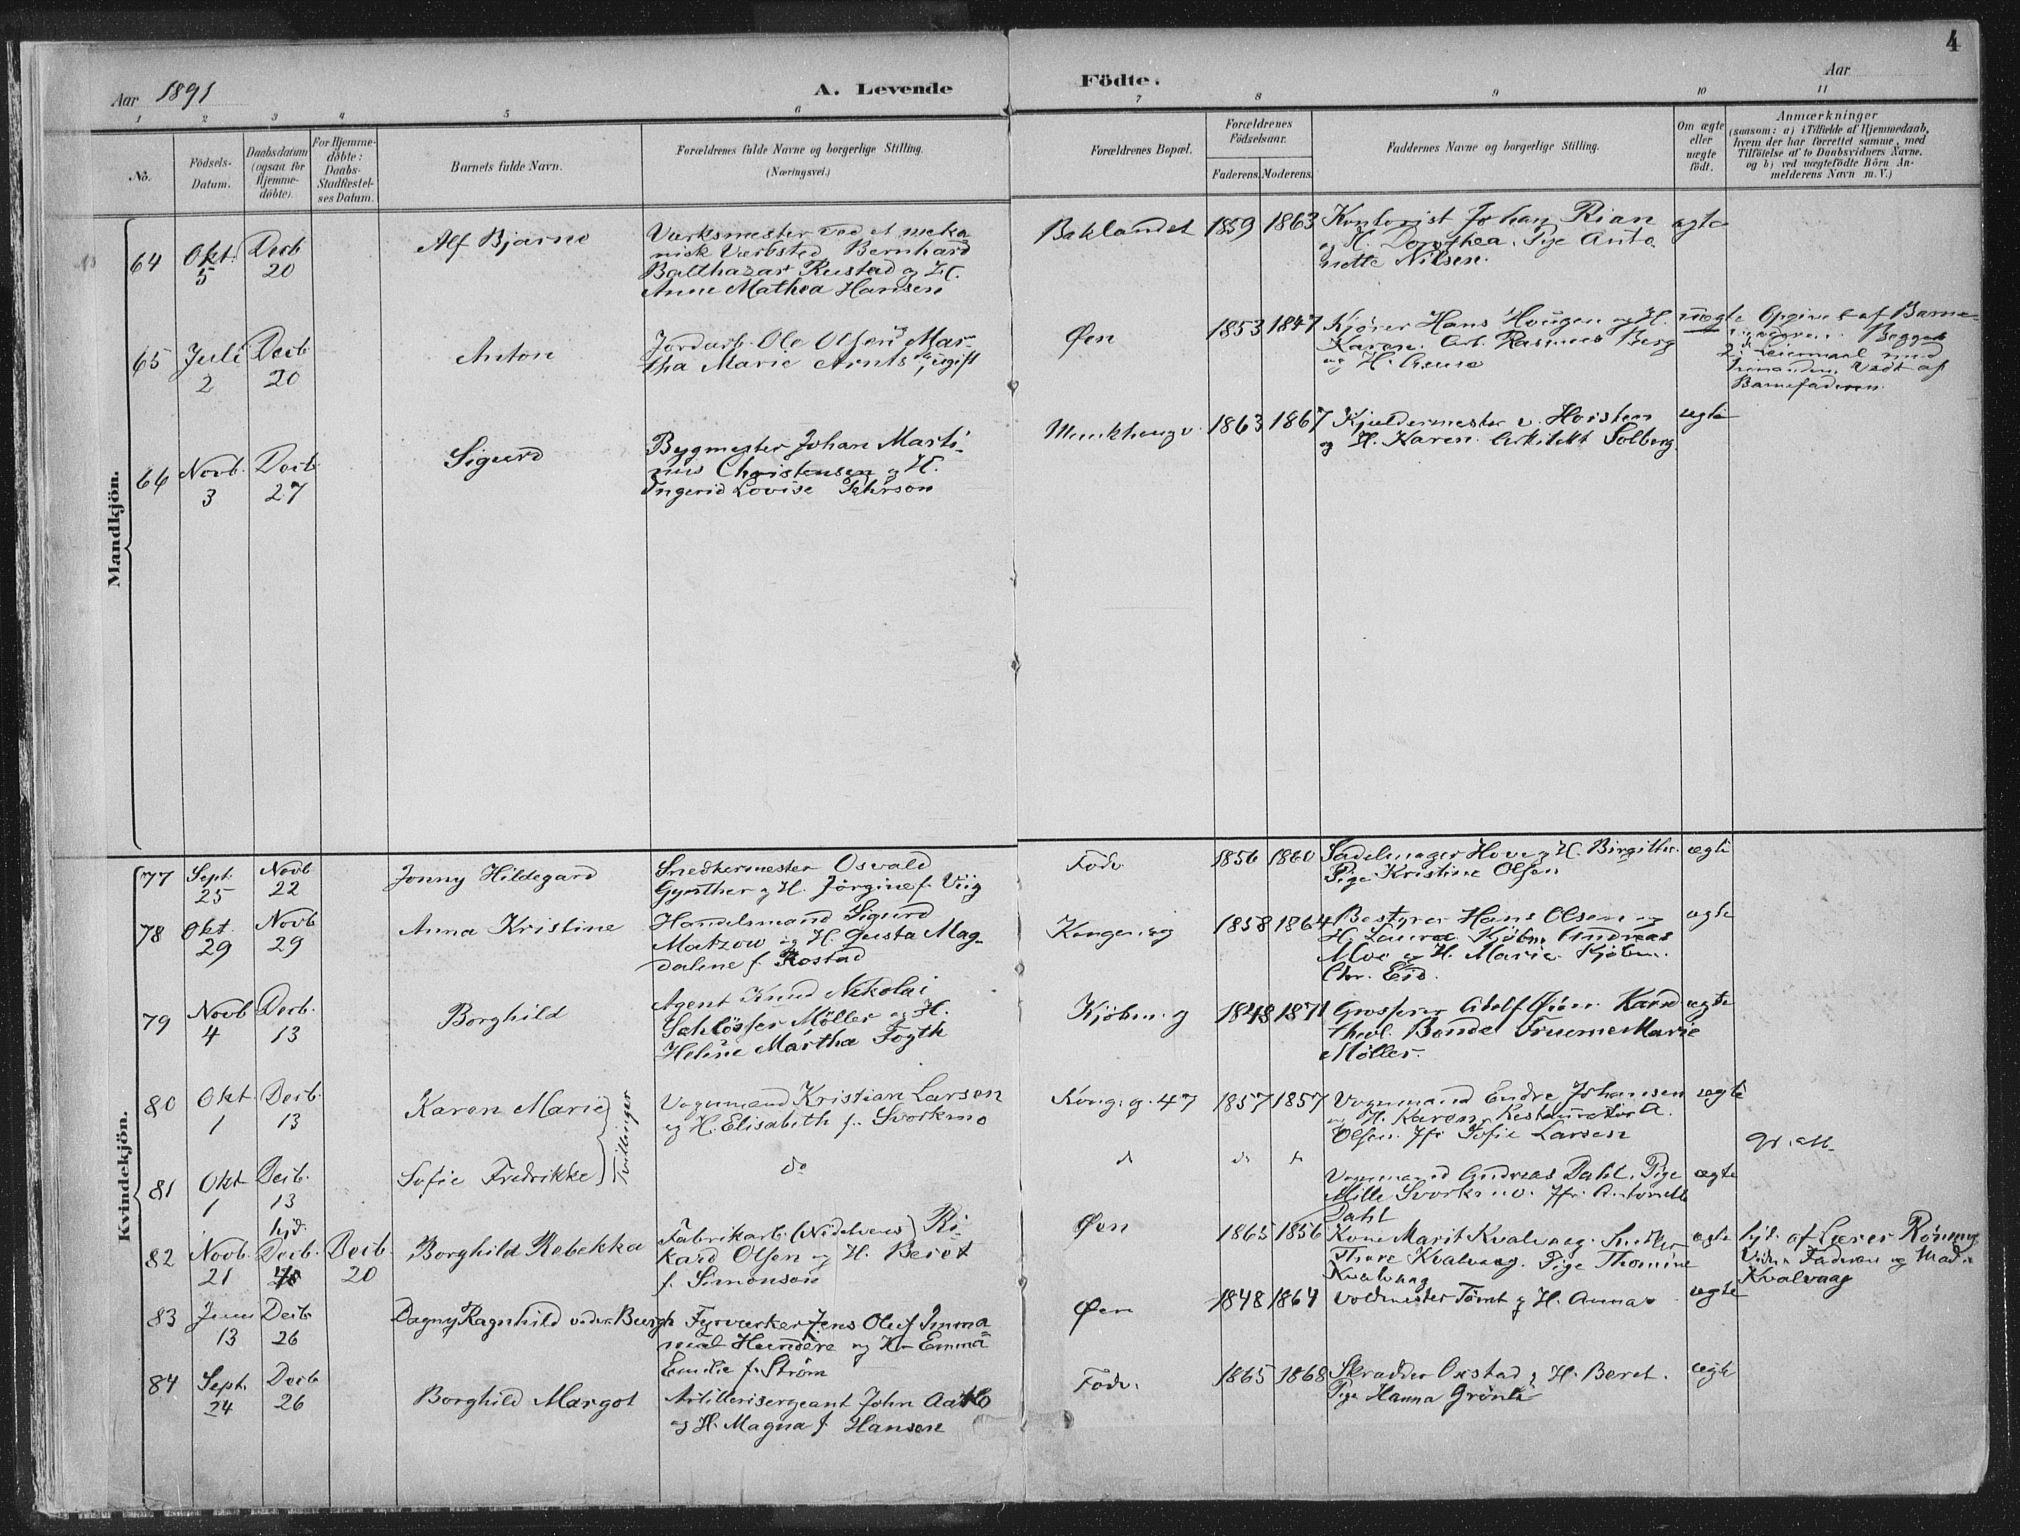 4
Aar 1891
A. Levende
Födte.
Aar
1 2 3 4 5 6 7 8 9 10 11
No.
Födsels-
Datum.
Daabsdatum
(ogsaa for
Hjemme-
döbte).
For Hjemme-
döbte:
Daabs-
Stadfæstel-
ses Datum.
Barnets fulde Navn.
Forældrenes fulde Navne og borgerlige Stilling.
(Næringsvei.)
Forældrenes Bopæl.
Forældrenes
Födselsaar.
Faderens. Moderens.
Faddernes Navne og borgerlige Stilling.
Om ægte
eller
uægte
födt.
Anmærkninger
(saasom: a) i Tilfælde af Hjemmedaab,
hvem der har forrettet samme, med
Tilföielse af to Daabsvidners Navne.
og b) ved uægtefödte Börn An-
melderens Navn m. V.)
Mandkjön.
64
Okt.
5
Decb
20
Alf Bjarne
Værksmester ved et meka
nisk Værksted Bernhard
Balthazar Rustad og H.
Anne Mathea Hansen
Baklandet
1859
1863
Kontorist Johan Rian
og H. Dorothea. Pige Anto
nette Nilsen.
ægte
65
Juli
2
Decb
20
Anton
Jordarb. Ole Olsen og Mar-
tha Marie Arnts, ugift
Øen
1853
1847
Kjører Hans Hougen og H.
Karen. Arb. Rasmus Berg
og H.
uægte
Opgivet af Barne
Begges
2det Leiermaal med
hinanden. Vedt. af
Barnefaderen.
66
Novb.
3
Decb
27
Sigurd
Bygmester Johan Marti-
nus Christensen og H.
Ingerid Lovise Pehrson
Munkhaugv.
1863
1867
Kjeldermester v. Horsten
og H. Karen. Arkitekt Solberg
ægte
Kvindekjön.
77
Sept.
25
Novb
22
Jonny Hildegard
Snedkermester Osvald
Gynther og H. Jørgine f. Viig
Fodv
1856
1860
Sadelmager Hove og H. Birgithe.
Pige Kristine Olsen
ægte
78
Okt.
29
Novb
29
Anna Kristine
Handelsmand Sigurd
Matzow og H. Gusta Mag-
dalene f. Rostad
Kongensg
1858
1864
Bestyrer Hans Olsen og
H. Laura. Kjøbm. Andreas
Moe og H. Marie. Kjøbm.
Chr. Eid.
ægte
79
Novb
4
Decb.
13
Borghild
Agent Knud Nikolai
Schlösser Møller og H.
Helene Martha Fogth
Kjøbm. g
1848
1871
Grosserer Adolf Øien. Kand
theol. Bonde Fruerne Marie
Møller.
ægte
80
Okt
1
Decb.
13
Karen Marie
Tvillinger
Vognmand Kristian Larsen
og H. Elisabeth f. Svorkmo
Kong. g. 47
1857
1857
Vognmand Endre Johansen
og H. Karen. Restauratør A.
Olsen. Jfr Sofie Larsen
ægte
81
Okt
1
Decb.
13
Sofie Fredrikke
do
d
d
d
Vognmand Andreas Dahl. Pige
Mille Svorkmo. Jfr. Antonette
Dahl
ægte
82
Novb.
21
hjd.
Decb.
Decb.
20
Borghild Rebekka
Fabrikarb. (Nidelven) Ri-
kard Olsen og H. Beret
f. Simonsen
Øen
1865
1856
Kone Marit Kvalvaag. Snedker
Thore Kvalvaag. Pige Thomine
Kvalvaag
ægte
hjd. af Lærer Rønning
Vidner Faderen og Mad.
Kvalvaag
83
Juni
13
Decb
26
Dagny Ragnhild von der Burgh
Fyrværker Jens Oluf Imma
nuel Hundere og H. Emma
Emilie f. Strøm
Øen
1848
1864
Voldmester Tømt og H. Anna
ægte
84
Sept.
24
Decb
26
Borghild Margot
Artillerisergeant John
og H. Magna f. Hansen
Fodv.
1865
1868
Skrædder Oxstad og H. Beret.
Pige Hanna Grønli
ægte